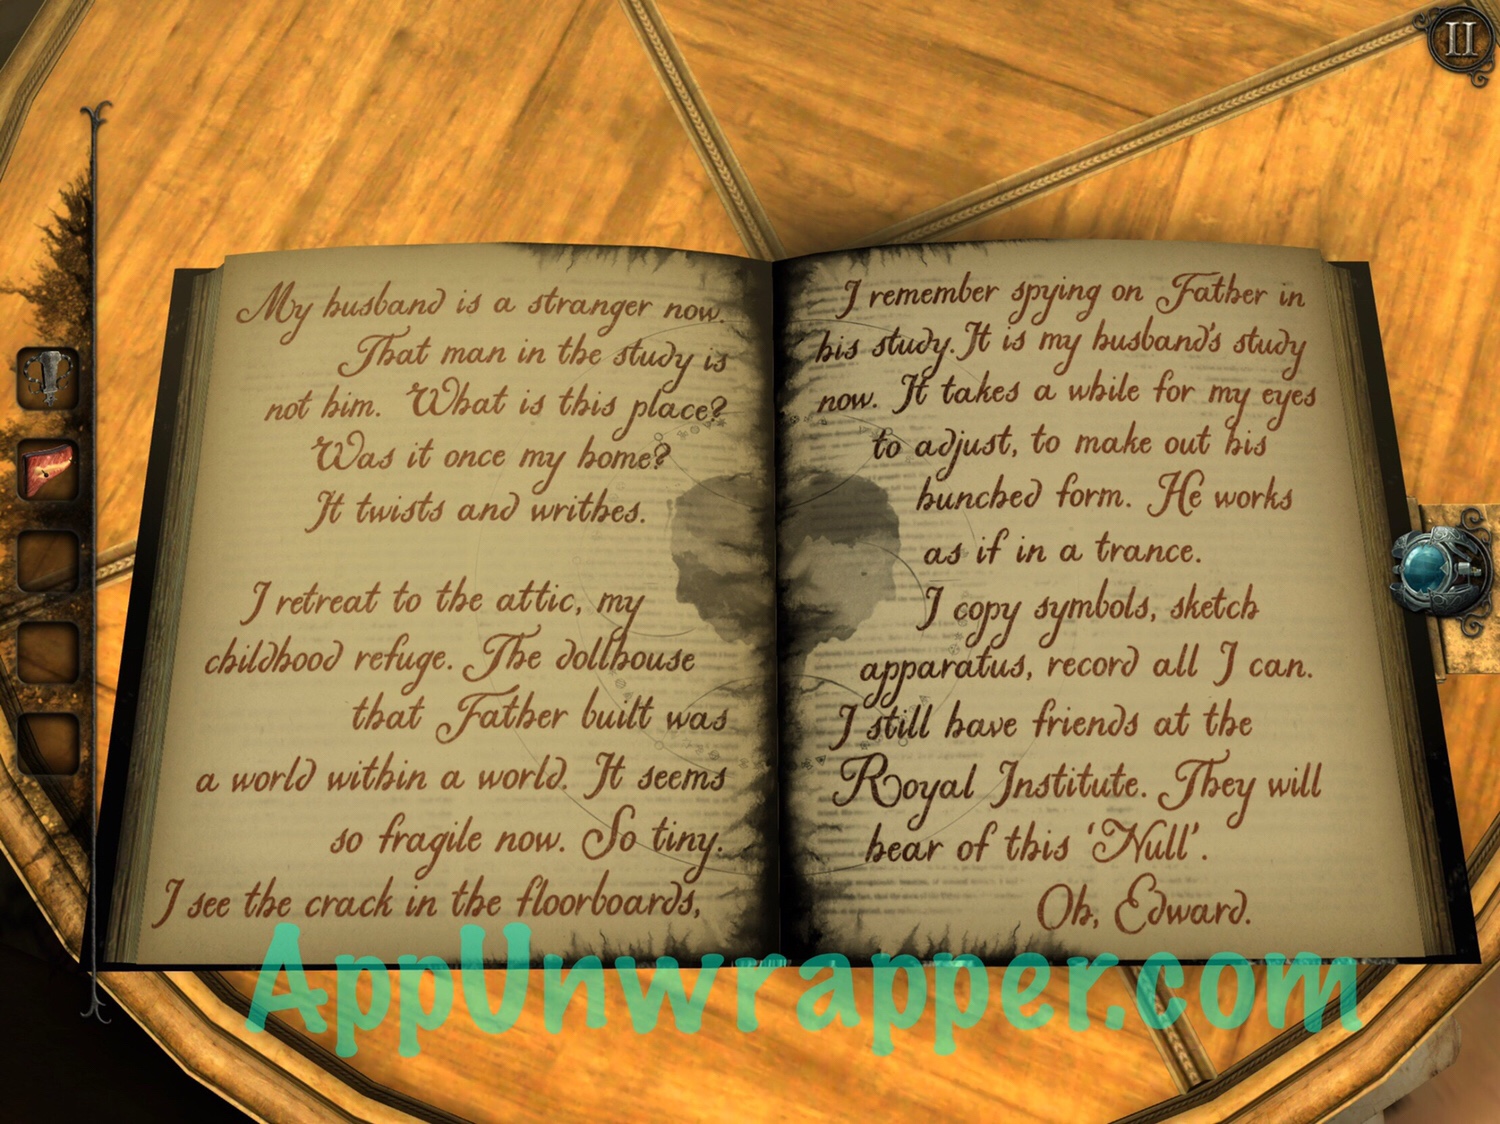 II
My husband is a stranger now.
That man in the study is
not him. What is this place?
Was it once my home?
It twists and writhes.
I retreat to the attic, my
childhood refuge. The dollhouse
that Father built was
a world within a world. It seems
so fragile now. So tiny.
I see the crack in the floorboards,
I remember spying on Father in
his study. It is my husband's study
now. It takes a while for my eyes
to adjust, to make out his
hunched form. He works
as if in a trance.
I copy symbols, sketch
apparatus, record all I can.
I still have friends at the
Royal Institute. They will
hear of this 'Null'.
Oh, Edward.
AppUnwrapper.com